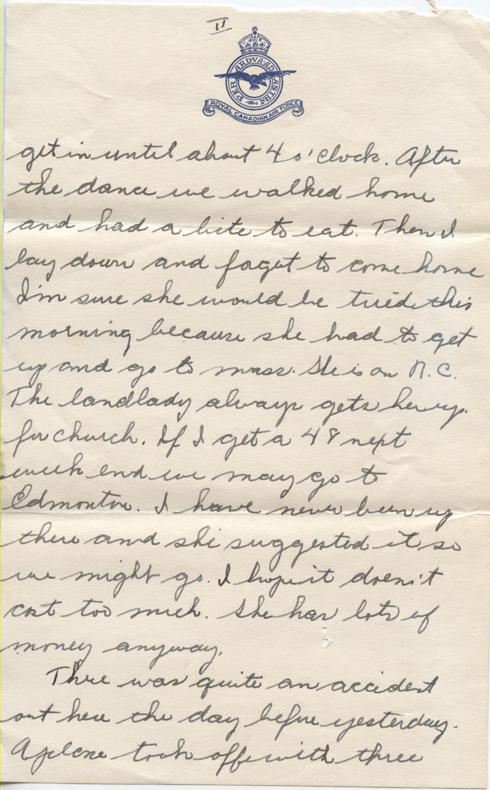 II
PER ARDUA AD ASTRA
ROYAL CANADIAN AIR FORCE
get in until about 4 o'clock. After
the dance we walked home
and had a bite to eat. Then I
lay down and forget to come home
I'm sure she would be tried this
morning because she had to get
up and go to mass. She is an R.C.
The landlady always gets her up
for church. If I get a 48 next
week end we may go to
Edmonton. I have never been up
there and she suggested it so
we might go. I hope it doesn't
cost too much. She has lots of
money anyway.
There was quite an accident
out here the day before yesterday.
A plane took off with three